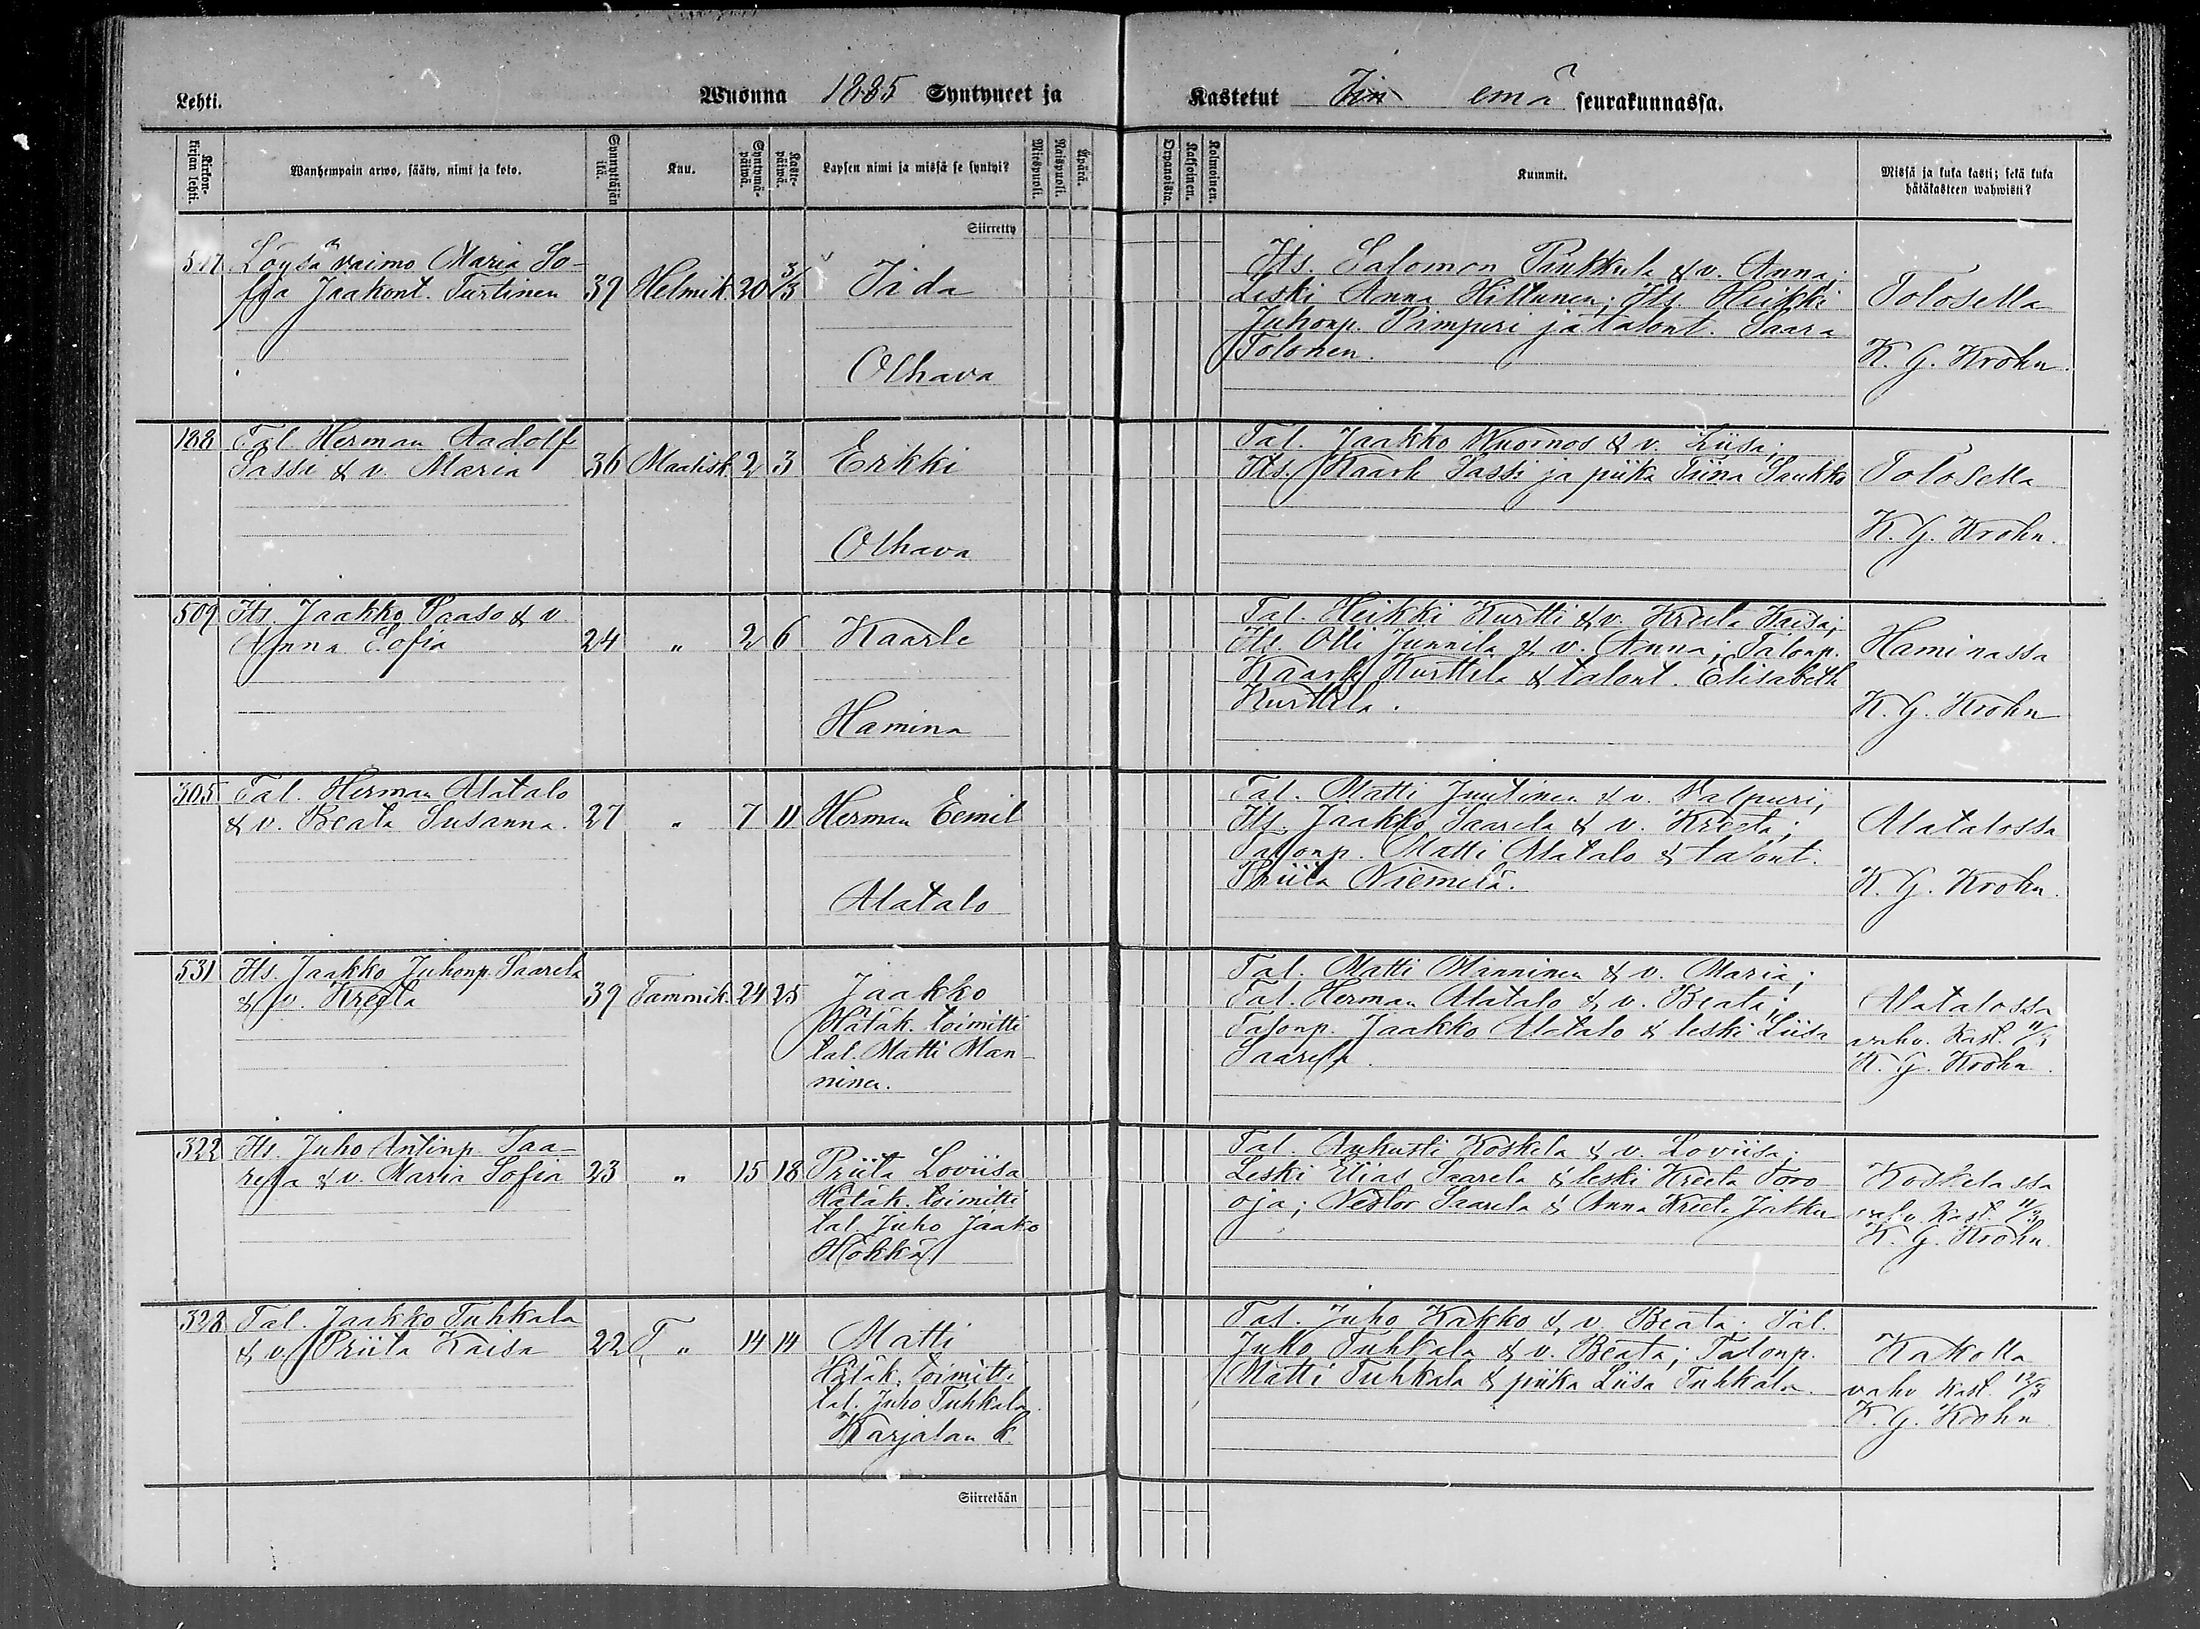 Lehti. Wuonna 1885 Syntyneet ja Kastetut Iin emä seurakunnassa.
Kirkonkirjan lehti.
Wanhempain arwo, sääty, nimi ja koto.
Synnyttäjän ikä.
Kuu.
Syntymäpäiwä.
Kastepäiwä.
Lapsen nimi ja missä se syntyi?
Miespuoli.
Naispuoli.
Äpärä.
Orpanoista.
Kaksoinen.
Kolmoinen.
Kummit.
Missä ja kuka kasti; sekä kuka
hätäkasteen wahwisti?
Siirretty
517 Löysä vaimo Maria So-
fia Jaakont. Turtinen 39 Helmik. 20 3/3 Iida
Olhava
Its. Salomon Pinkkula & v. Anna;
Leski Anna Hiltunen; Its. Heikki
Juhonp. Pimperi ja talont. Saara
Tolonen.
Tolosella
K. G. Krohn.
188 Tal. Herman Aadolf
Sassi & v. Maria 36 Maalisk. 2 3 Erkki
Olhava
Tal. Jaakko Wuornos & v. Liisa;
Its. Kaarle Sassi ja piika Tiina Saukko
Tolosella
K. G. Krohn.
509 Its. Jaakko Paaso & v.
Anna Sofia 24 " 2 6 Kaarle
Hamina
Tal. Heikki Kurtti & v. Kreeta Kaisa;
Its. Olli Junnila & v. Anna; Talonp.
Kaarle Kurttila & talont. Elisabeth
Kurttila.
Haminassa
K. G. Krohn
305 Tal. Herman Alatalo
& v. Beata Susanna. 27 " 7 11 Herman Eemil
Alatalo
Tal. Matti Juutinen & v. Valpuri;
Its. Jaakko Saarela & v. Kreeta;
Talonp. Matti Alatalo & talont.
Priita Niemelä.
Alatalossa
K. G. Krohn.
531 Its. Jaakko Juhonp. Saarela
& v. Kreeta 39 Tammik. 24 25 Jaakko
Hätäk. toimitti
tal. Matti Man-
ninen.
Tal. Matti Manninen & v. Maria;
Tal. Herman Alatalo & v. Beata;
Talonp. Jaakko Alatalo & leski Liisa
Saarela.
Alatalossa
vahv. Kast.
K. G. Krohn.
322 Its. Juho Antinp. Saa-
rela & v. Maria Sofia 23 " 15 18 Priita Loviisa
Hätäk. toimitti
tal. Juho Jaako
Hökkä
Tal. Aukusti Koskela & v. Loviisa;
Leski Elias Saarela & leski Kreeta Toro
oja; Nestor Saarela & Anna Kreeta Jakku
Koskelassa
vahv. Kast. 11/3
K. G. Krohn.
328 Tal. Jaakko Tuhkala
& v. Priita Kaisa 22 T. " 14 14 Matti
Hätäk. toimitti
tal. Juho Tuhkala.
Karjalan k.
Tal. Juho Kakko & v. Beata; Tal.
Juho Tuhkala & v. Beata; Talonp.
Matti Tuhkala & piika Liisa Tuhkala.
Kakolla
vahv. Kast. 12/3
K. G. Krohn
Siirretään